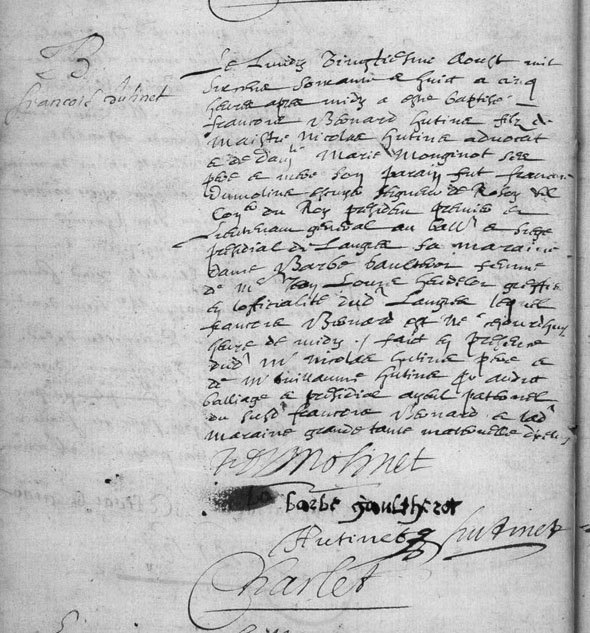 B
françois hutinet
Le Lundy vingtiesme Aoust mil
six cens soixante et huict a cinq
heure apres midy a esté baptisé
françois Bernard hutinet filz de
Maistre Nicolas hutinet advocat
et de dam^lle Marie Monginot ses
pere et mere son parain fut françois
Dumolinet escuyer seigneur de Rosoy
Con^er du Roy president premier et
Lieutenant general au bail^e et siege
presidial de Langres sa maraine
dame Barbe Gaultherot femme
de M^e greffier
en lofficialité dud^t Langres lequel
françois Bernard est né cejourdhuy
heure de midy / faict en presence
dud^t M^e Nicolas hutinet pere et
de M^e Guillaume hutinet audit
balliage et presidial ayeul paternel
du susd^t françois Bernard et lad^te
maraine grande tante maternelle
Dumolinet
barbe gaultherot
Hutinet hutinet
Charlet